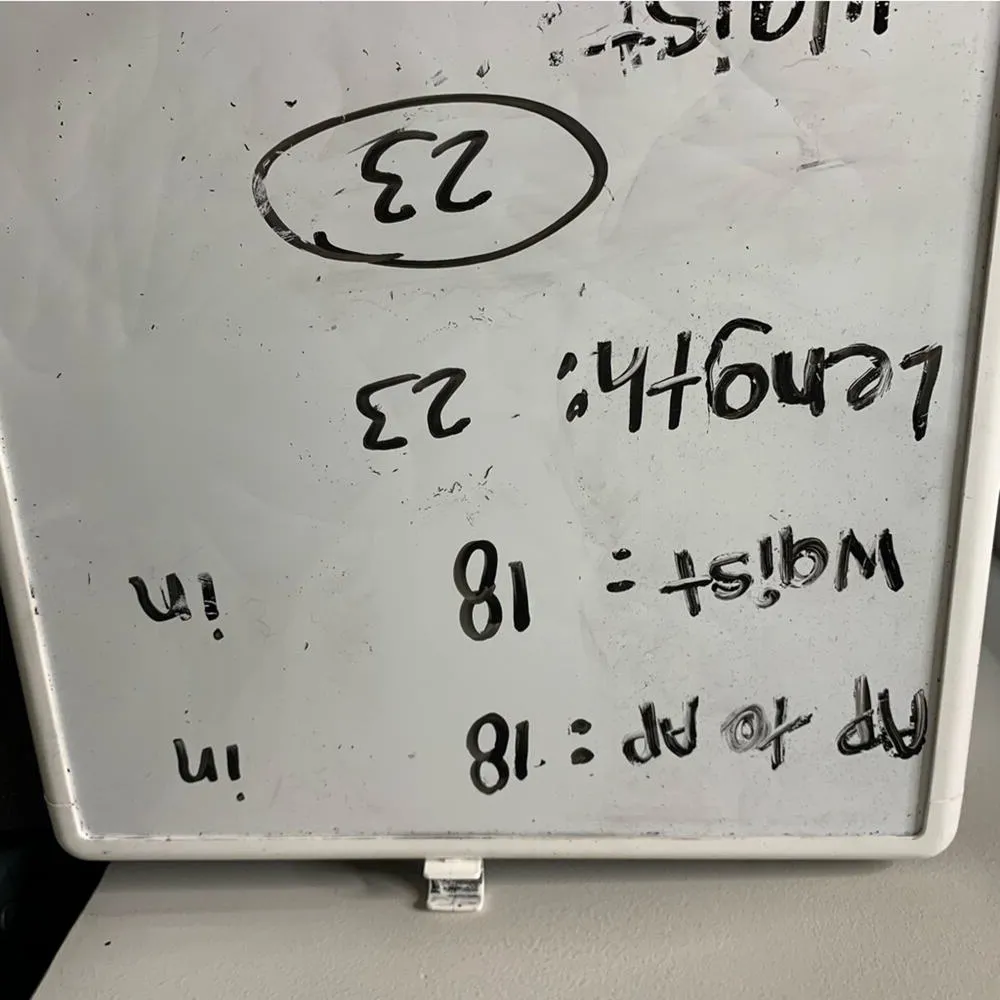 AP to AP : 18 in
Waist : 18 in
Length: 23
23
Waist: